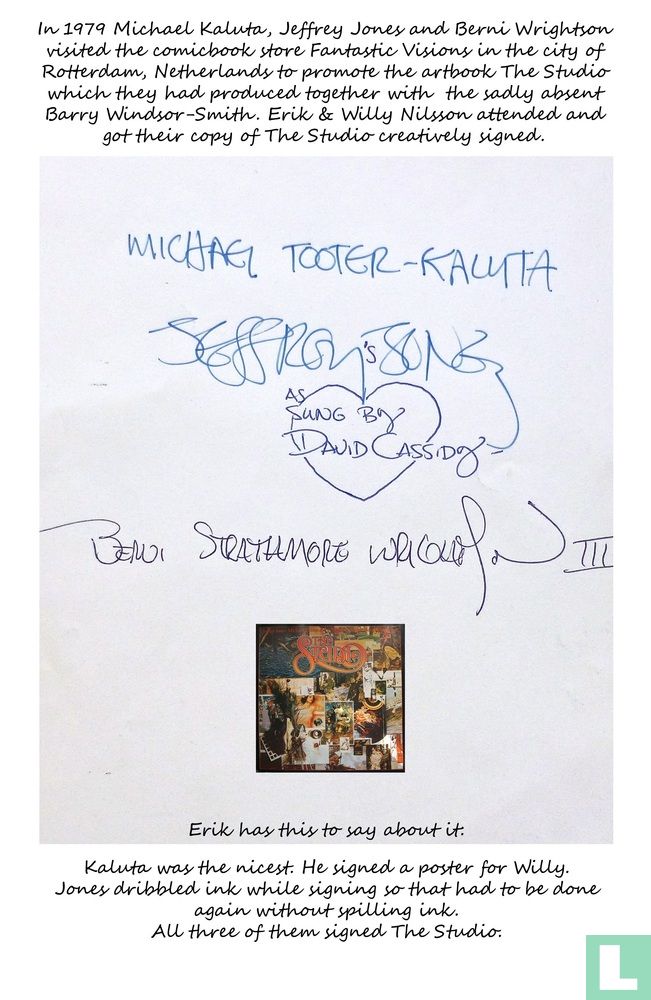 In 1979 Michael Kaluta, Jeffrey Jones and Berni Wrightson
visited the comicbook store Fantastic Visions in the city of
Rotterdam, Netherlands to promote the artbook The Studio
which they had produced together with the sadly absent
Barry Windsor-Smith. Erik & Willy Nilsson attended and
got their copy of The Studio creatively signed.
MICHAEL TOOTER-KALUTA
JEFFREY'S JONES
AS
SUNG By
DAVID CASSIDY
BERNI STRATHMORE WRIGHTSON III
THE
STUDIO
Erik has this to say about it:
Kaluta was the nicest. He signed a poster for Willy.
Jones dribbled ink while signing so that had to be done
again without spilling ink.
All three of them signed The Studio.
L